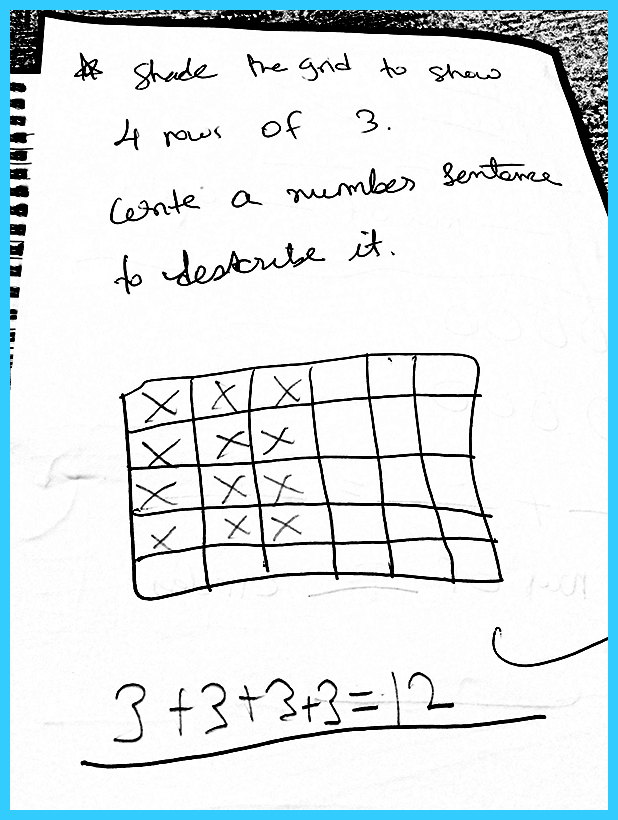 * Shade the grid to show
4 rows of 3.
Write a number sentence
to describe it.
X X X
X X X
X X X
X X X
3+3+3+3=12